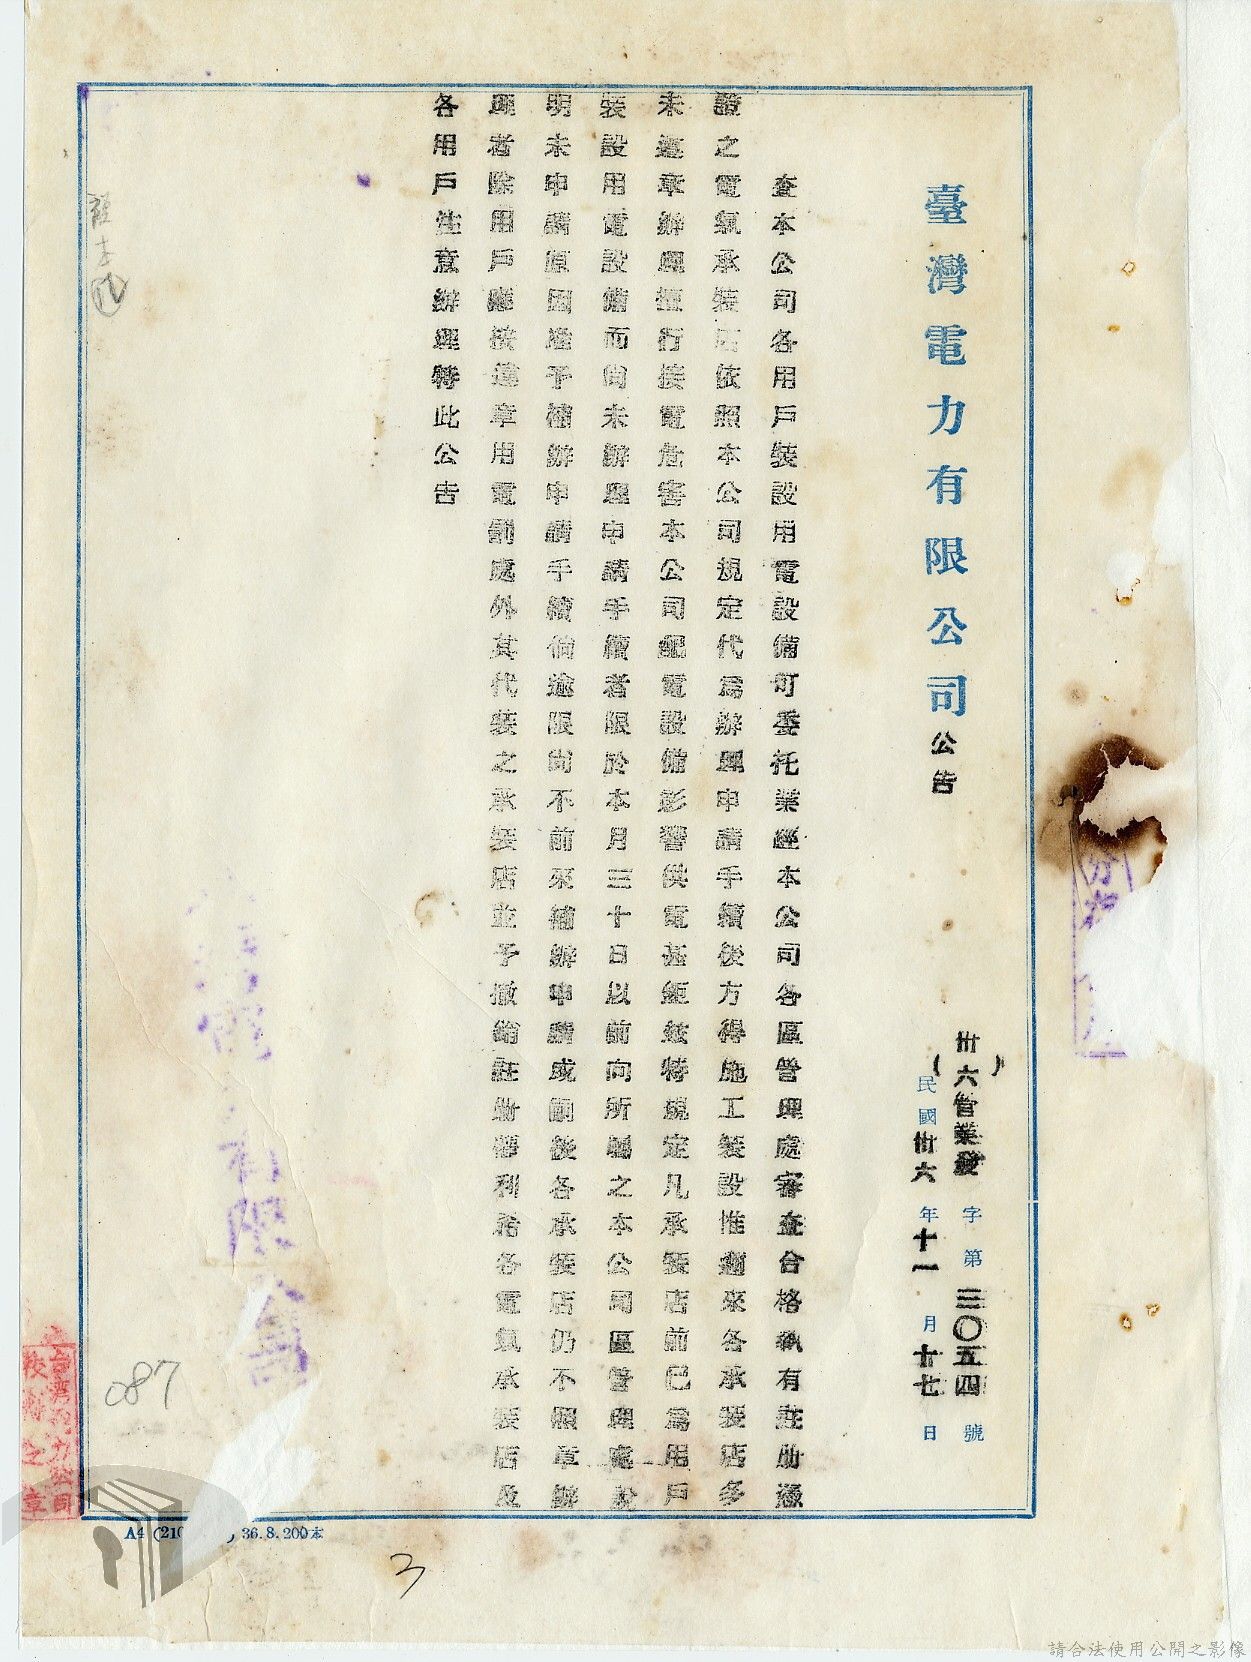 臺灣電力有限公司公告
(卅六管業發字第三〇五四號)
民國卅六年十一月十七日
查本公司各用戶裝設用電設備可委托業經本公司各區管理處審查合格執有註册憑
證之電氣承裝店依照本公司規定代為辦理申請手續後方得施工裝設惟邇來各承裝店多
未遵章辦理擅行接電危害本公司配電設備影響供電甚鉅玆特規定凡承裝店前已為用戶
裝設用電設備而尚未辦理申請手續者限於本月三十日以前向所屬之本公司區管理處說
明未申請原因准予補辦申請手續倘逾限尚不前來補辦申請或嗣後各承裝店仍不願章辦
理者除用戶應按違章用電罰處外其代裝之承裝店並予撤銷註册權利希各電氣承裝店及
各用戶注意辦理特此公告
有限公司
台灣電力公司
校對之章
087
A4 (210 ) 36.8.200本
3
請合法使用公開之影像